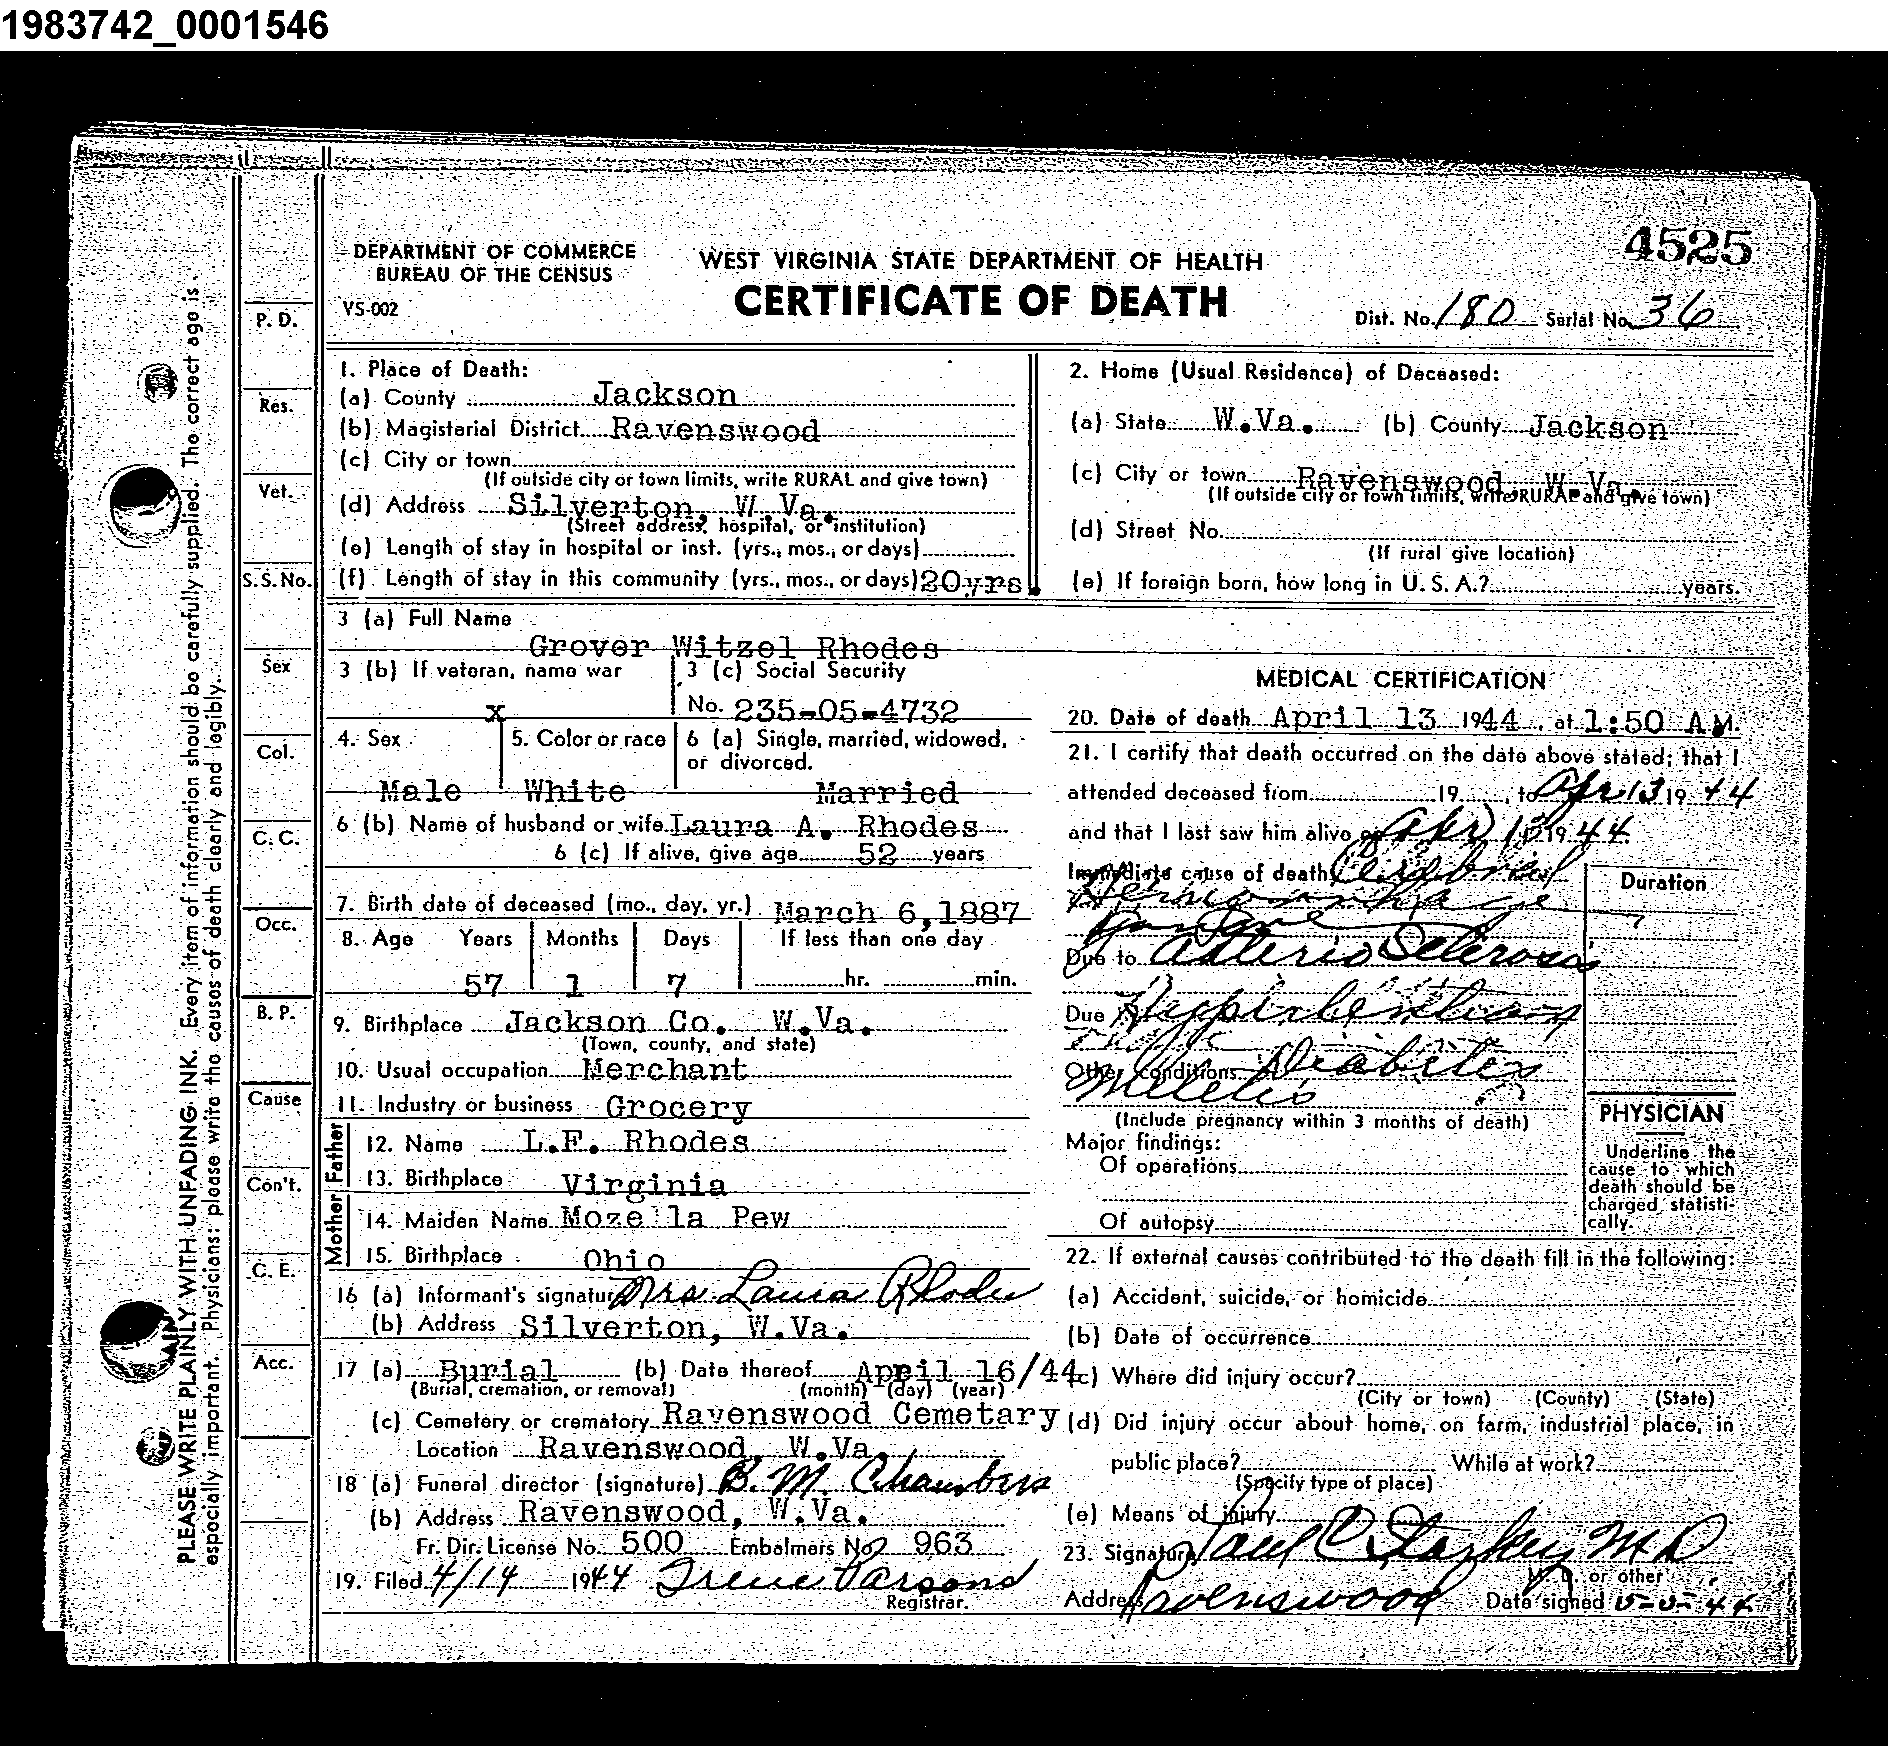 1983742_0001546
4525
DEPARTMENT OF COMMERCE
BUREAU OF THE CENSUS
VS-002
WEST VIRGINIA STATE DEPARTMENT OF HEALTH
CERTIFICATE OF DEATH
Dist. No. 180 Serial No. 36
P. D.
Res.
Vet.
S. S. No.
Sex
Col.
C. C.
Occ.
B. P.
Cause
Con't.
C. E.
Acc.
PLEASE WRITE PLAINLY WITH UNFADING INK. Every item of information should be carefully supplied. The correct age is
especially important. Physicians: please write the causes of death clearly and legibly.
1. Place of Death:
(a) County Jackson
(b) Magisterial District Ravenswood
(c) City or town
(If outside city or town limits, write RURAL and give town)
(d) Address Silverton, W.Va.
(Street address, hospital, or institution)
(e) Length of stay in hospital or inst. (yrs., mos., or days)
(f) Length of stay in this community (yrs., mos., or days) 20yrs.
2. Home (Usual Residence) of Deceased:
(a) State W.Va. (b) County Jackson
(c) City or town Ravenswood, W.Va.
(If outside city or town limits, write RURAL and give town)
(d) Street No.
(If rural give location)
(e) If foreign born, how long in U. S. A.? years.
3 (a) Full Name
Grover Witzel Rhodes
3 (b) If veteran, name war
x
3 (c) Social Security
No. 235-05-4732
4. Sex
Male
5. Color or race
White
6 (a) Single, married, widowed,
or divorced.
Married
6 (b) Name of husband or wife Laura A. Rhodes
6 (c) If alive, give age 52 years
7. Birth date of deceased (mo., day, yr.) March 6,1887
8. Age Years Months Days If less than one day
57 1 7 hr. min.
9. Birthplace Jackson Co. W.Va.
(Town, county, and state)
10. Usual occupation Merchant
11. Industry or business Grocery
Father
12. Name L.F. Rhodes
13. Birthplace Virginia
Mother
14. Maiden Name Moze'la Pew
15. Birthplace Ohio
16 (a) Informant's signature Mrs Laura Rhodes
(b) Address Silverton, W.Va.
17 (a) Burial (b) Date thereof April 16/44
(Burial, cremation, or removal) (month) (day) (year)
(c) Cemetery or crematory Ravenswood Cemetary
Location Ravenswood, W.Va.
18 (a) Funeral director (signature) B. M. Chambers
(b) Address Ravenswood, W.Va.
Fr. Dir. License No. 500 Embalmers No. 963
19. Filed 4/14 1944 Irene Parsons
Registrar.
MEDICAL CERTIFICATION
20. Date of death April 13 1944, at 1:50 A.M.
21. I certify that death occurred on the date above stated; that I
attended deceased from 19 , to Apr 13 19 44
and that I last saw him alive on Apr 19 44.
Immediate cause of death Cerebral
Hemorrhage
Duration
Due to Arterio Sclerosis
Due to
Other conditions Diabetes
(Include pregnancy within 3 months of death)
Major findings:
Of operations
Of autopsy
PHYSICIAN
Underline the
cause to which
death should be
charged statisti-
cally.
22. If external causes contributed to the death fill in the following:
(a) Accident, suicide, or homicide
(b) Date of occurrence
(c) Where did injury occur?
(City or town) (County) (State)
(d) Did injury occur about home, on farm, industrial place, in
public place? While at work?
(Specify type of place)
(e) Means of injury
23. Signature Paul C Starkey M D
M. D. or other
Address Ravenswood Date signed